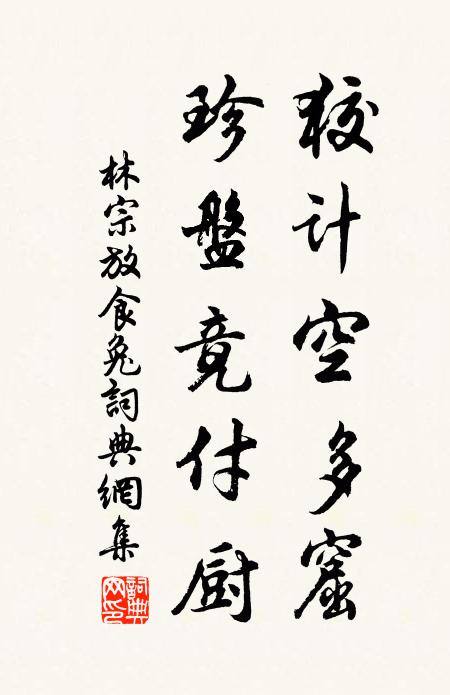 狡计空多窟
珍盤竟付厨
林宗放食兔詞典網集
詞典網印